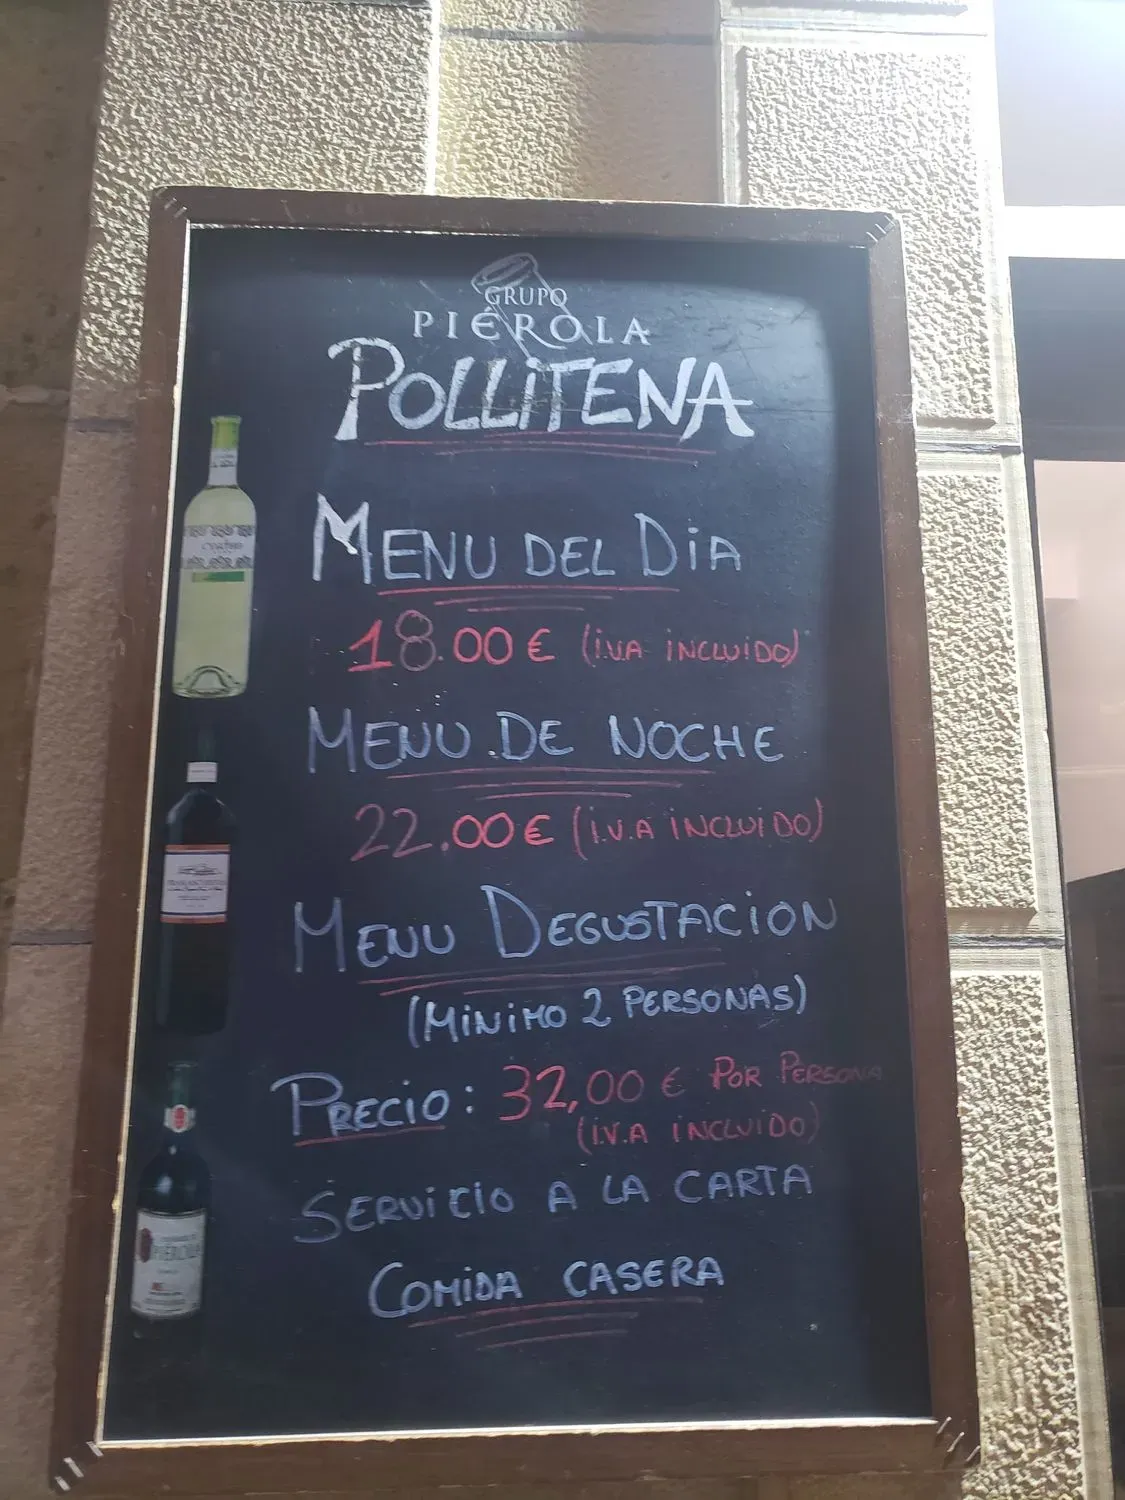 GRUPO
PIÉROLA
POLLITENA
MENU DEL DiA
18.00 € (i.V.A INCLUIDO)
MENU DE NOCHE
22.00 € (i.V.A INCLUIDO)
MENU DEGUSTACION
(MiNiMO 2 PERSONAS)
PRECIO: 32,00 € POR PERSONA
(i.V.A INCLUIDO)
SERViCiO A LA CARTA
COMiDA CASERA
PIÉROLA